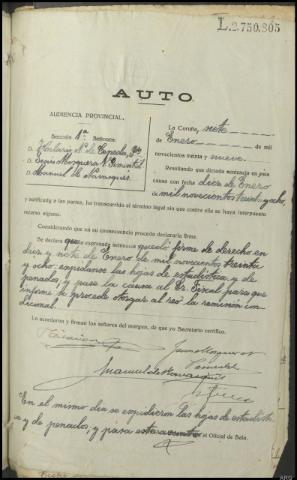 L.2.750.805
AUTO
AUDIENCIA PROVINCIAL.
Sección 1ª Señores
D. Hilario Nª de Cepeda, Pte
D. Jesús Marquina P. Pimentel
D. Manuel de Marragués
La Coruña, siete
Enero de mil
novecientos treinta y nueve.
Resultando que dictada sentencia en esta
causa con fecha diez de Enero
de mil novecientos treinta y ocho,
y notificada a las partes, ha transcurrido el término legal sin que contra ella se haya interpuesto
recurso alguno.
Considerando que en su consecuencia procede declararla firme.
Se declara que expresada sentencia quedó firme de derecho en
diez y siete de Enero de mil novecientos treinta
y ocho; expídanse las hojas de estadística y de
penados, y pase la causa al Sr. Fiscal para que
informe si procede otorgar al reo la remisión con
dicional.
Lo acordaron y firman los señores del margen, de que yo Secretario certifico.
Manuel de
En el mismo día se expidieron las hojas de estadísti
ca y de penados, y para el Oficial de Sala.
ARG